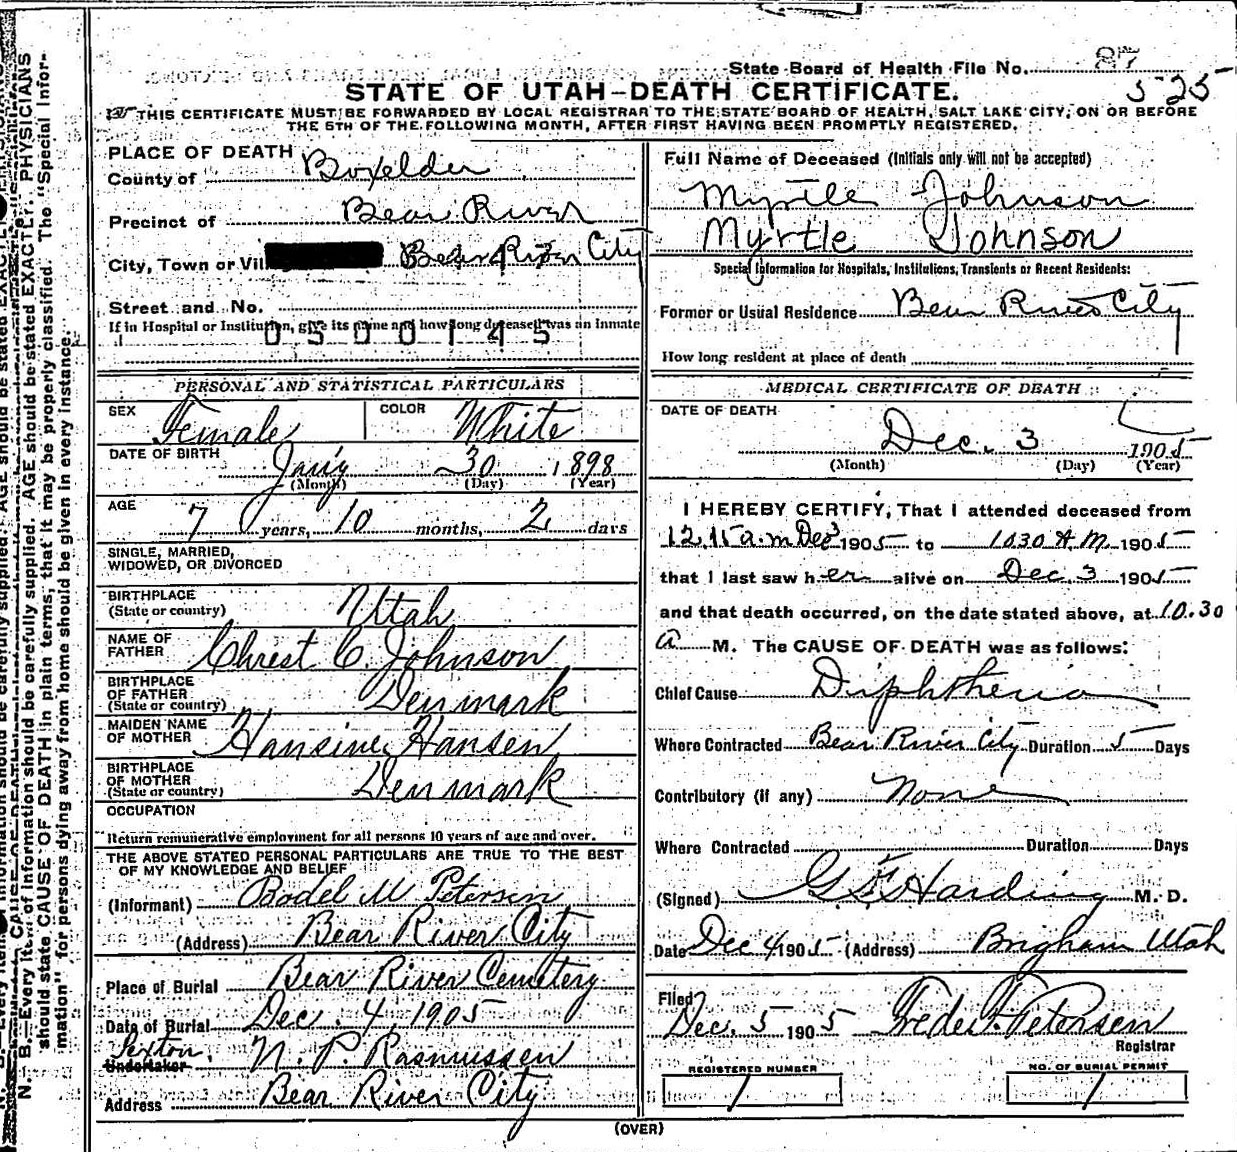 State Board of Health File No. 87
525
STATE OF UTAH—DEATH CERTIFICATE.
THIS CERTIFICATE MUST BE FORWARDED BY LOCAL REGISTRAR TO THE STATE BOARD OF HEALTH, SALT LAKE CITY, ON OR BEFORE
THE 5TH OF THE FOLLOWING MONTH, AFTER FIRST HAVING BEEN PROMPTLY REGISTERED.
PLACE OF DEATH
County of Boxelder
Precinct of Bear River
City, Town or Vil Bear River City
Street and No.
If in Hospital or Institution, give its name and how long deceased was an Inmate
0500145
PERSONAL AND STATISTICAL PARTICULARS
SEX Female COLOR White
DATE OF BIRTH Jany 30 1898
(Month) (Day) (Year)
AGE 7 years, 10 months, 2 days
SINGLE, MARRIED,
WIDOWED, OR DIVORCED
BIRTHPLACE
(State or country) Utah
NAME OF
FATHER Christ C. Johnson
BIRTHPLACE
OF FATHER
(State or country) Denmark
MAIDEN NAME
OF MOTHER Hansine Hansen
BIRTHPLACE
OF MOTHER
(State or country) Denmark
OCCUPATION
Return remunerative employment for all persons 10 years of age and over.
THE ABOVE STATED PERSONAL PARTICULARS ARE TRUE TO THE BEST
OF MY KNOWLEDGE AND BELIEF
(Informant) Bodel M Petersen
(Address) Bear River City
Place of Burial Bear River Cemetery
Date of Burial Dec. 4, 1905
Sexton
Undertaker N. P. Rasmussen
Address Bear River City
Full Name of Deceased (Initials only will not be accepted)
Myrtle Johnson
Myrtle Johnson
Special Information for Hospitals, Institutions, Transients or Recent Residents:
Former or Usual Residence Bear River City
How long resident at place of death
MEDICAL CERTIFICATE OF DEATH
DATE OF DEATH
Dec. 3 1905
(Month) (Day) (Year)
I HEREBY CERTIFY, That I attended deceased from
12.15 a.m Dec 3 1905 to 1030 A.M. 1905
that I last saw her alive on Dec. 3 1905
and that death occurred, on the date stated above, at 10.30
a M. The CAUSE OF DEATH was as follows:
Chief Cause Diphtheria
Where Contracted Bear River City Duration 5 Days
Contributory (if any) None
Where Contracted Duration Days
(Signed) G. F. Harding M. D.
Date Dec 4 1905 (Address) Brigham Utah
Filed
Dec. 5 1905 Petersen
Registrar
REGISTERED NUMBER NO. OF BURIAL PERMIT
1 1
(OVER)
N. B.—Every item of information should be carefully supplied. AGE should be stated EXACTLY. PHYSICIANS
should state CAUSE OF DEATH in plain terms, that it may be properly classified. The "Special Infor-
mation" for persons dying away from home should be given in every instance.